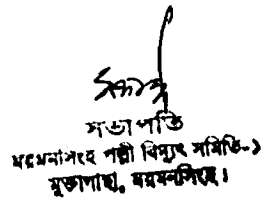 সভাপতি
ময়মনসিংহ পল্লী বিদ্যুৎ সমিতি-১
মুক্তাগাছা, ময়মনসিংহ।